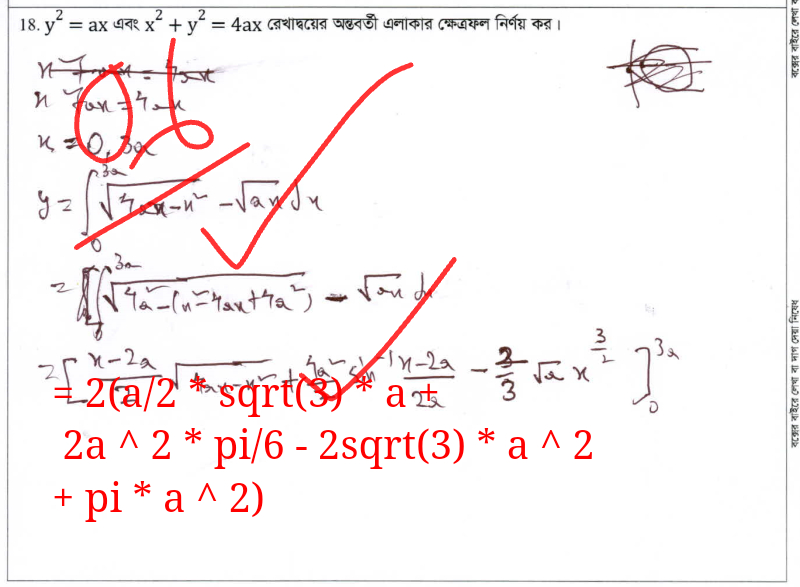 18. y² = ax এবং x² + y² = 4ax রেখাদ্বয়ের অন্তবর্তী এলাকার ক্ষেত্রফল নির্ণয় কর।
x² + ax = 4ax
x² + ax = 4ax
x = 0, 3a
06
y = ∫₀^3a √(4ax-x²) - √ax dx
= ∫₀^3a √(4a² - (x² - 4ax + 4a²)) - √ax dx
= [ (x-2a)/2 √(4ax-x²) + 4a²/2 sin⁻¹ (x-2a)/2a - 2/3 √a x^3/2 ]₀^3a
= 2(a/2 * sqrt(3) * a +
2a ^ 2 * pi/6 - 2sqrt(3) * a ^ 2
+ pi * a ^ 2)
বক্সের বাইরে লেখা বা দাগ দেয়া নিষেধ
বক্সের বাইরে লেখা ব